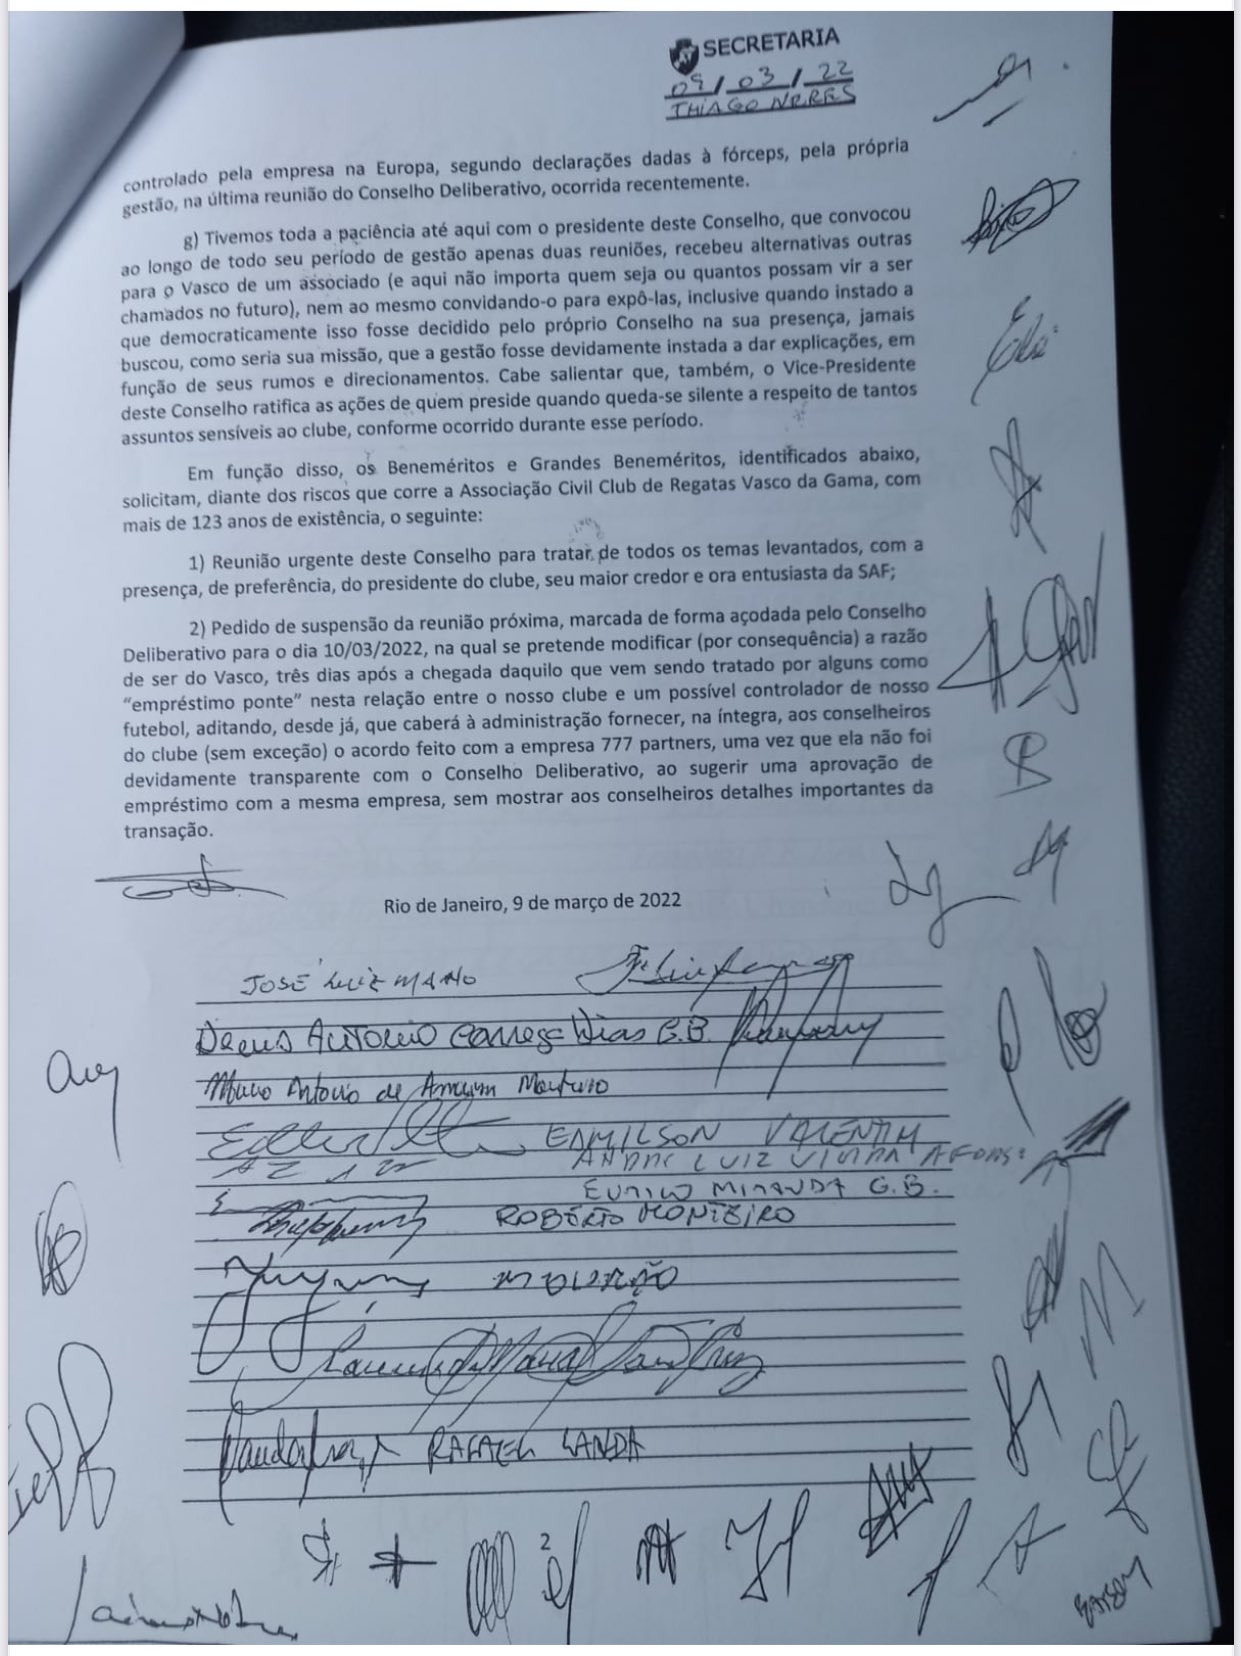 SECRETARIA
09/03/22
THIAGO NERES
controlado pela empresa na Europa, segundo declarações dadas à fórceps, pela própria
gestão, na última reunião do Conselho Deliberativo, ocorrida recentemente.
g) Tivemos toda a paciência até aqui com o presidente deste Conselho, que convocou
ao longo de todo seu período de gestão apenas duas reuniões, recebeu alternativas outras
para o Vasco de um associado (e aqui não importa quem seja ou quantos possam vir a ser
chamados no futuro), nem ao mesmo convidando-o para expô-las, inclusive quando instado a
que democraticamente isso fosse decidido pelo próprio Conselho na sua presença, jamais
buscou, como seria sua missão, que a gestão fosse devidamente instada a dar explicações, em
função de seus rumos e direcionamentos. Cabe salientar que, também, o Vice-Presidente
deste Conselho ratifica as ações de quem preside quando queda-se silente a respeito de tantos
assuntos sensíveis ao clube, conforme ocorrido durante esse período.
Em função disso, os Beneméritos e Grandes Beneméritos, identificados abaixo,
solicitam, diante dos riscos que corre a Associação Civil Club de Regatas Vasco da Gama, com
mais de 123 anos de existência, o seguinte:
1) Reunião urgente deste Conselho para tratar de todos os temas levantados, com a
presença, de preferência, do presidente do clube, seu maior credor e ora entusiasta da SAF;
2) Pedido de suspensão da reunião próxima, marcada de forma açodada pelo Conselho
Deliberativo para o dia 10/03/2022, na qual se pretende modificar (por consequência) a razão
de ser do Vasco, três dias após a chegada daquilo que vem sendo tratado por alguns como
“empréstimo ponte” nesta relação entre o nosso clube e um possível controlador de nosso
futebol, aditando, desde já, que caberá à administração fornecer, na íntegra, aos conselheiros
do clube (sem exceção) o acordo feito com a empresa 777 partners, uma vez que ela não foi
devidamente transparente com o Conselho Deliberativo, ao sugerir uma aprovação de
empréstimo com a mesma empresa, sem mostrar aos conselheiros detalhes importantes da
transação.
Rio de Janeiro, 9 de março de 2022
JOSÉ LUIZ MANO
Antonio Dias G.B.
Antonio de Amorim Monteiro
EDMILSON VALENTIM
ANDRE LUIZ VIEIRA AFONSO
EURICO MIRANDA G.B.
ROBERTO MONTEIRO
RAFAEL LANDA